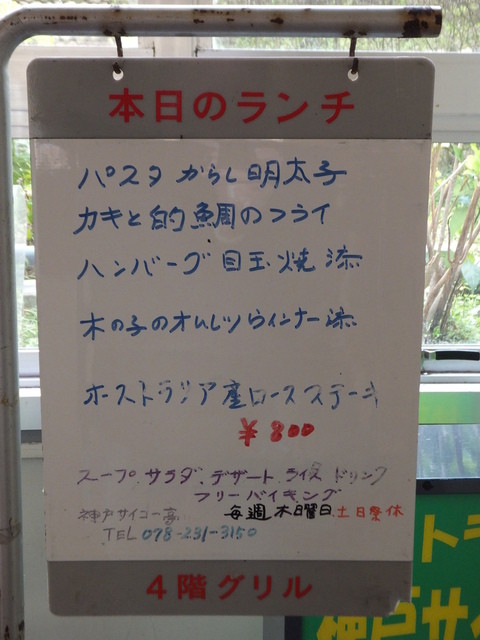 本日のランチ
パスタ からし明太子
カキと的鯛のフライ
ハンバーグ 目玉焼 添
木の子のオムレツ ウインナー添
オーストラリア産ロースステーキ
¥800
スープ、サラダ、デザート、ライス ドリンク
フリーバイキング
毎週 木曜日 土日祭休
神戸サイコー亭
TEL 078-231-3150
4階グリル
トラ
神戸サ